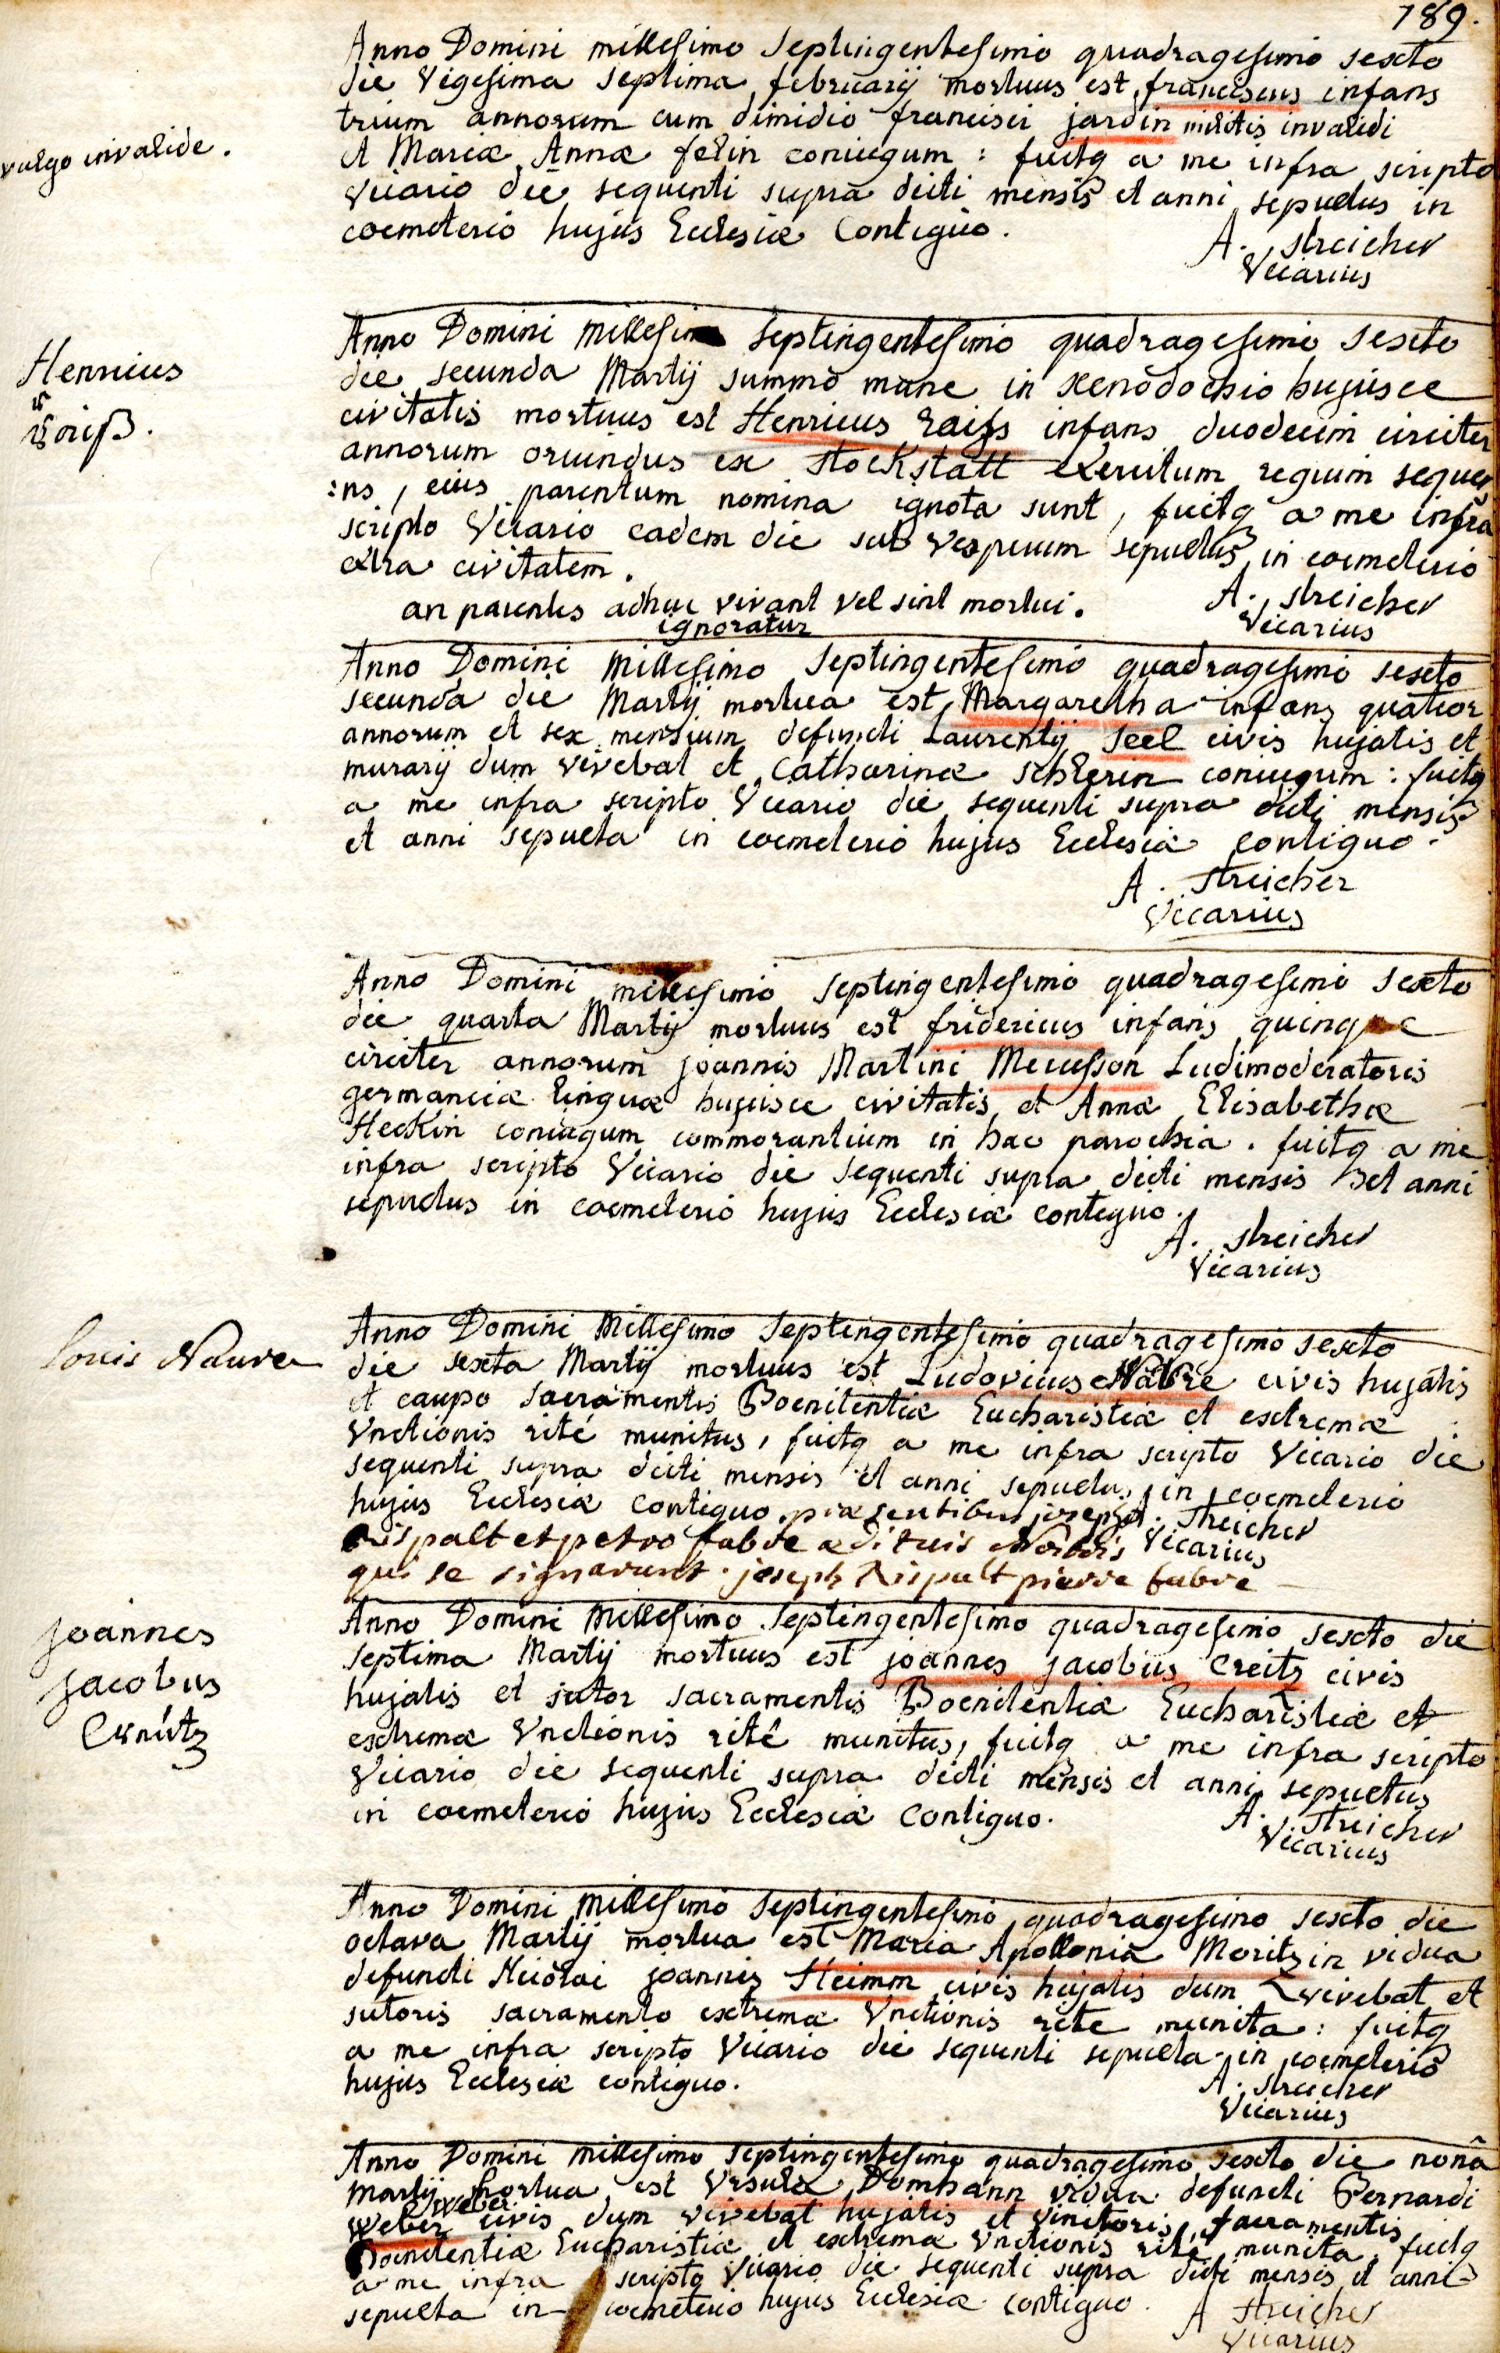 189.
Anno Domini millesimo septingentesimo quadragesimo sexto
die vigesima septima februarij mortuus est franciscus infans
trium annorum cum dimidio francisci jardin militis invalidi
vulgo invalide.
et Mariæ Annæ felin coniugum : fuitq a me infra scripto
Vicario die sequenti supra dicti mensis et anni sepultus in
coemeterio hujus Ecclesiæ Contiguo.
A. Streicher
Vicarius
Anno Domini Millesimo Septingentesimo quadragesimo Sexto
Henricus
die secunda Martij summo mane in xenodochio hujusce
civitatis mortuus est Henricus raiss infans duodecim circiter
annorum oriundus ex stockstatt exercitum regium sequen
:ns, eius parentum nomina ignota sunt, fuitq a me infra
scripto Vicario eadem die sub vesperum sepultus in coemeterio
extra civitatem.
an parentes adhuc vivant vel sint mortui.
ignoratur
A. Streicher
Vicarius
Anno Domini Millesimo Septingentesimo quadragesimo sexto
secunda die Martij mortua est Margaretha infans quatuor
annorum et sex mensium defuncti Laurentij Seel civis hujatis et
murarij dum vivebat et Catharinæ schlerin coniugum : fuitq
a me infra scripto Vicario die sequenti supra dicti mensis
et anni sepulta in coemeterio hujus Ecclesiæ contiguo.
A. Streicher
Vicarius
Anno Domini millesimo septingentesimo quadragesimo Sexto
die quarta Martij mortuus est fridericus infans quinque
circiter annorum joannis Martini Meusson Ludimoderatoris
germanicæ linguæ hujusce civitatis et Annæ Elisabethæ
Heckin coniugum commorantium in hac parochia. fuitq a me
infra scripto Vicario die sequenti supra dicti mensis et anni
sepultus in coemeterio hujus Ecclesiæ contiguo.
A. Streicher
Vicarius
Anno Domini Millesimo Septingentesimo quadragesimo sexto
Louis Navre
die sexta Martij mortuus est Ludovicus Navre civis hujatis
et caupo sacramentis Poenitentiæ Eucharistiæ et extremæ
Unctionis rité munitus, fuitq a me infra scripto Vicario die
sequenti supra dicti mensis et anni sepultus in coemeterio
hujus Ecclesiæ contiguo. præsentibus joseph A. Streicher
Rispalt et petro fabre ædituis Vicarius
qui se signarunt. joseph Rispalt pierre fabre
Anno Domini Millesimo Septingentesimo quadragesimo sexto die
joannes
jacobus
Creütz
septima Martij mortuus est joannes jacobus Creitz civis
hujatis et sutor sacramentis Poenitentiæ Eucharistiæ et
extremæ Unctionis rité munitus, fuitq a me infra scripto
Vicario die sequenti supra dicti mensis et anni sepultus
in coemeterio hujus Ecclesiæ Contiguo.
A. Streicher
Vicarius
Anno Domini Millesimo Septingentesimo quadragesimo sexto die
octava Martij mortua est Maria Apollonia Moritzin vidua
defuncti Nicolai joannis Heimm civis hujatis dum vivebat et
sutoris sacramento extremæ Unctionis rite munita: fuitq
a me infra scripto Vicario die sequenti sepulta in coemeterio
hujus Ecclesiæ contiguo.
A. Streicher
Vicarius
Anno Domini millesimo septingentesimo quadragesimo sexto die nonâ
Martij mortua est Ursula Domhann vidua defuncti Bernardi
Weber civis dum vivebat hujatis et vinitoris, sacramentis
Poenitentiæ Eucharistiæ et extremæ Unctionis rité munita, fuitq
a me infra scripto Vicario die sequenti supra dicti mensis et anni
sepulta in coemeterio hujus Ecclesiæ contiguo.
A Streicher
Vicarius